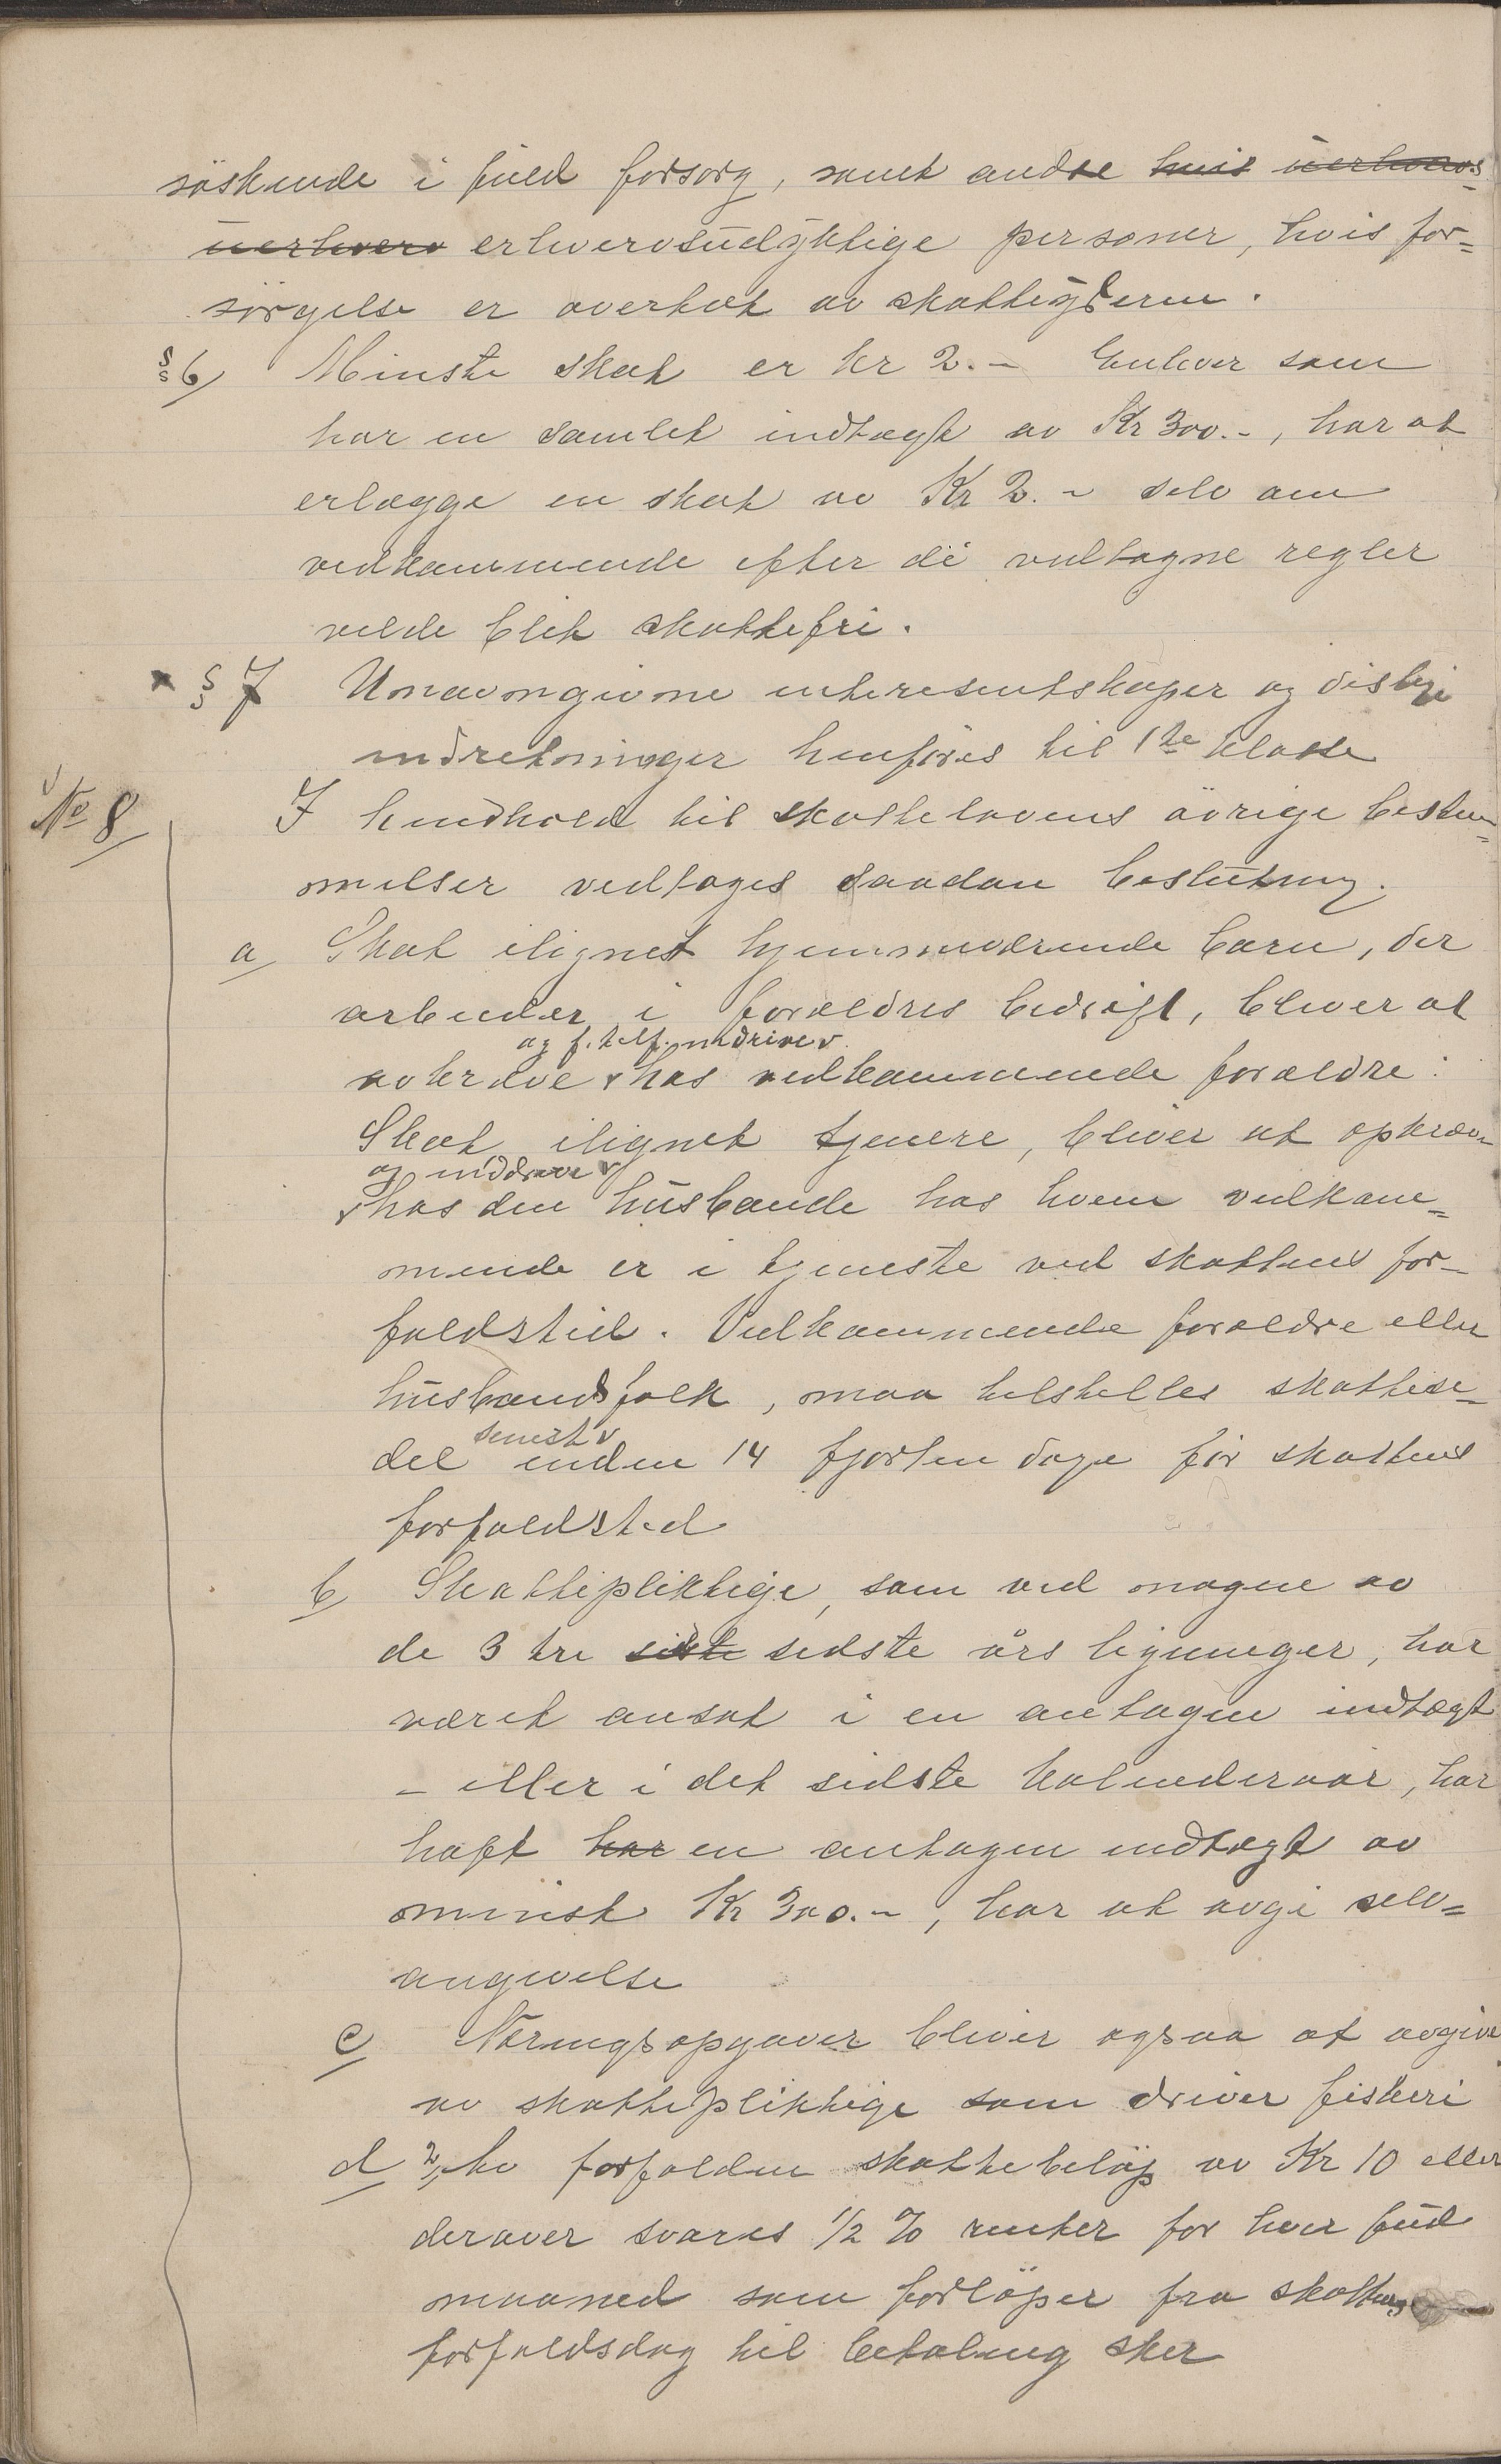 söskende i fuld forsorg, samt andre hvis uerhvervs-
uerhverv erhvervsudyktige personer, hvis for=
sörgelse er overtat av skatteyderen.
§ 6 Minste skat er kr 2.- Enhver som
har en samlet indtægt av Kr 300.-, har at
erlægge en skat av Kr 2.- selv om
vedkommende efter de vedtagne regler
vilde blit skattefri.
x § 7 Unavngivne interesentskaper og deslige
indretninger henföres til 1ste klasse
No 8 I henhold til skattelovens övrige bestem=
melser vedtages saadan beslutning.
a Skat ilignet hjemmeværende barn, der
arbeider i forældres bedrift, bliver at
og f. tilf. inddrive v
avkræve v hos vedkommende forældre:
Skat ilignet tjenere, bliver at opkræve
og inddrive v
v hos den husbande hos hvem vedkom=
mende er i tjeneste ved skattens for-
faldstid. Vedkommende forældre eller
husbandsfolk, maa tilstilles skattese-
senest v
del inden 14 fjorten dage för skattens
forfaldstid
b Skattepliktige, som ved nogen av
de 3 tre siste sidste års ligninger, har
været ansat i en antagen indtægt
- eller i det sidste kalenderaar, har
haft har en antagen indtægt av
minst Kr 300.-, har at avgi selv=
angivelse
c Næringsopgaver bliver ogsaa at avgive
av skattepliktige som driver fiskeri
d forfalden skattebelöp av Kr 10 eller
derover svares 1/2 % renter for hver fuld
maaned som forlöper fra skattens
forfaldsdag til betaling sker